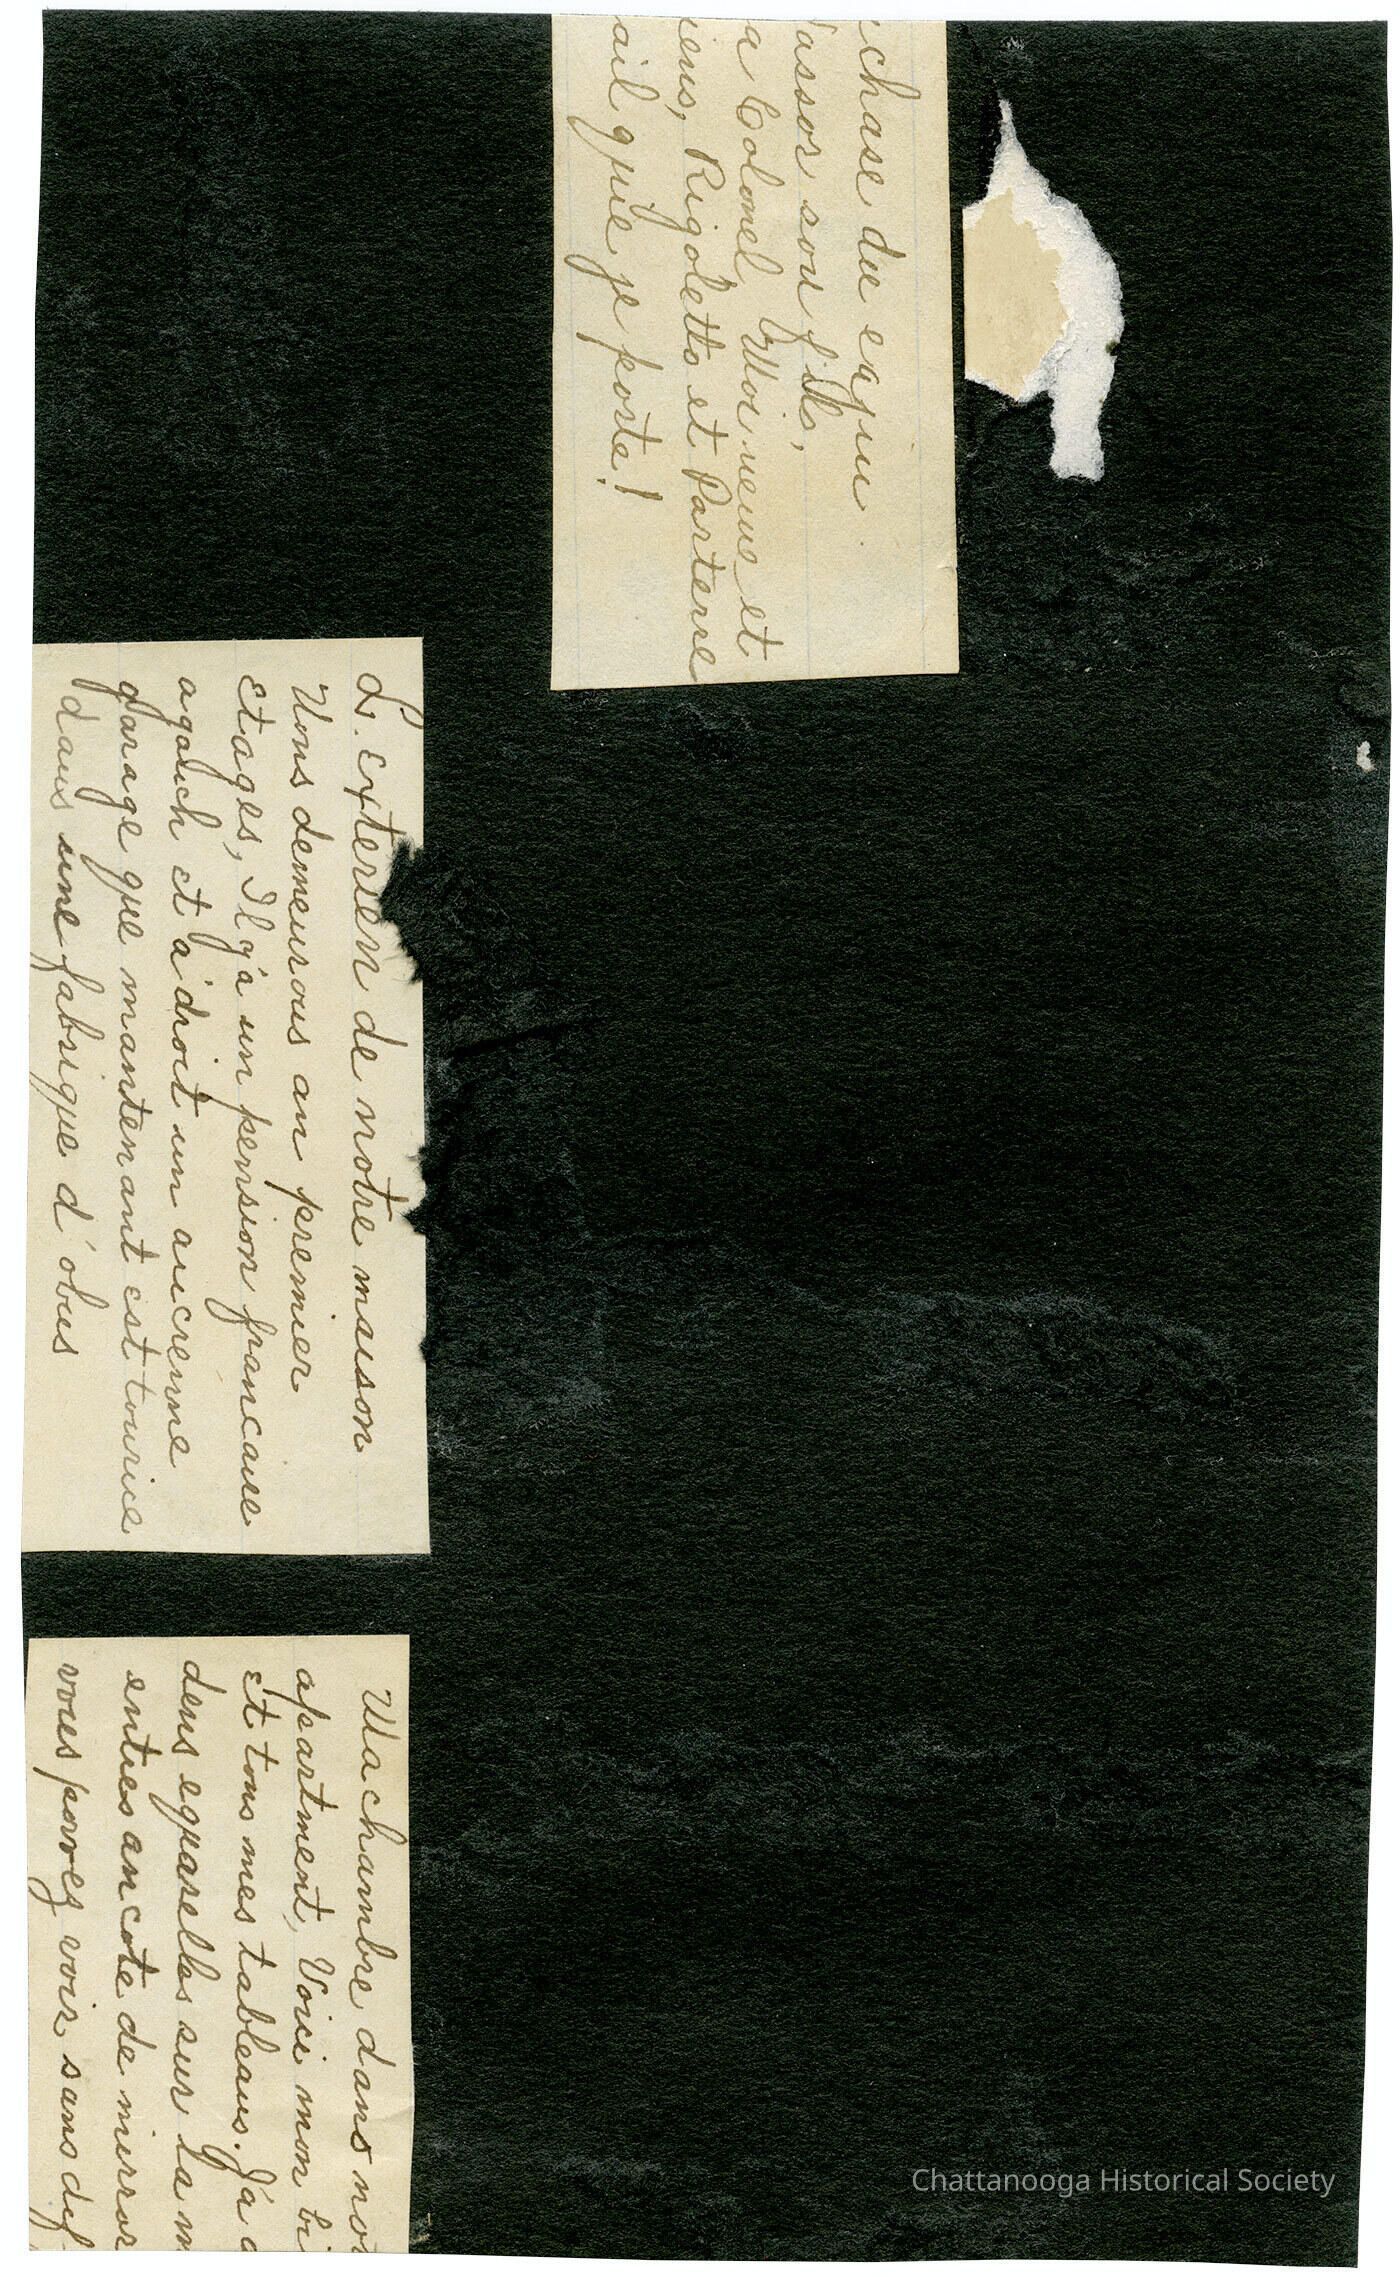 chase du lapin
assos sou fils,
a Colonel, Moi meme et
iens, Rigoletto et Parterre
ail qu'ile je porte!
L. exterien de notre maison
Nons demeurous au premier
etages, Il y'a un pension francaise
agauch et a' droit un aucienne
garage que mantenant est tourne
dans une fabrique d'obus
Ma chambre dans not
apartment, Voici mon b
et tous mes tableaus. J'a a
deus equarelles sur la m
enties au cote de mirror
vous povez voir sans dif
Chattanooga Historical Society